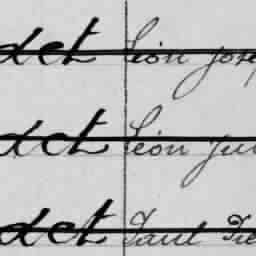 det Léon Jose
det Léon Jul
det Paul Pie